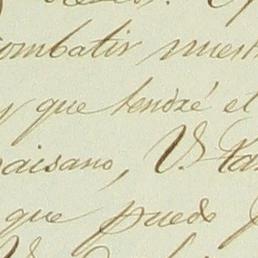 combatir nuest
y que tendré el
paisano, V. ta
que puede